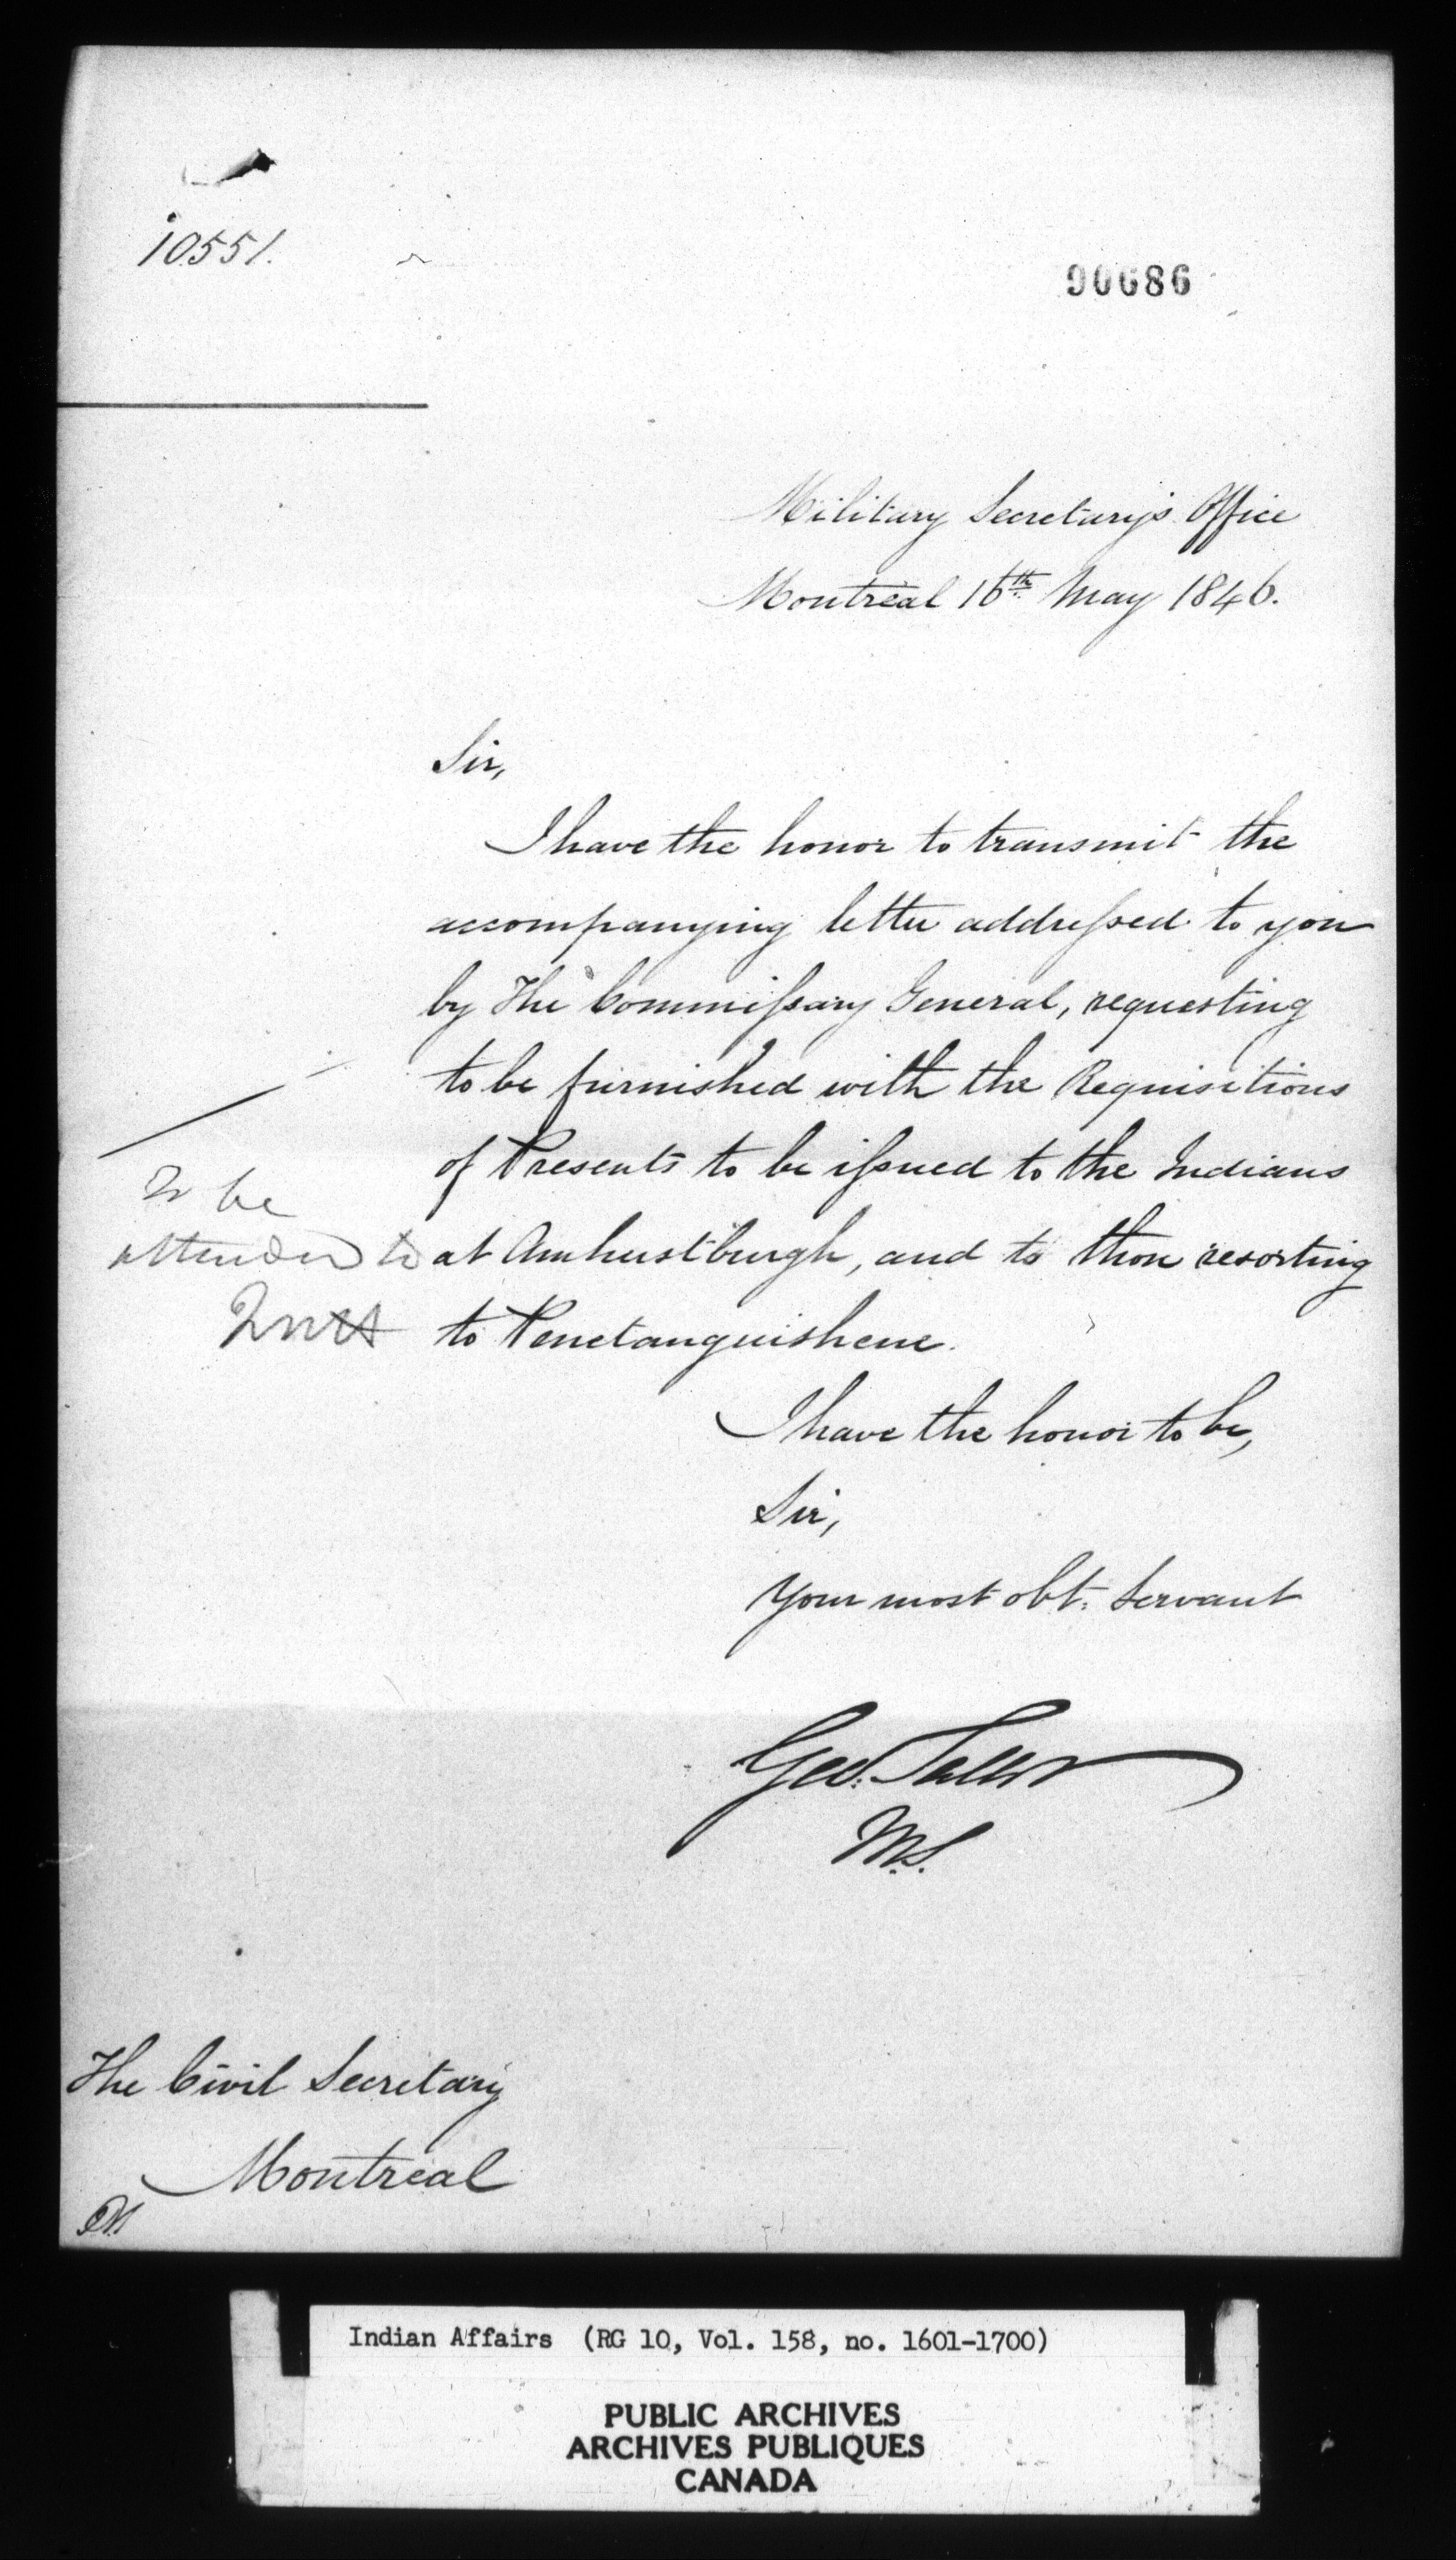 10551.
90686
Military Secretary's Office
Montreal 16th May 1846.
Sir,
I have the honor to transmit the
accompanying letter addressed to you
by The Commissary General, requesting
to be furnished with the Requisitions
of Presents to be issued to the Indians
To be
attended to
at Amherstburgh, and to those resorting
to Penetanguishene.
I have the honor to be,
Sir,
Your most obt. Servant
Geo. Talbot
M.S.
The Civil Secretary
Montreal
Indian Affairs (RG 10, Vol. 158, no. 1601-1700)
PUBLIC ARCHIVES
ARCHIVES PUBLIQUES
CANADA